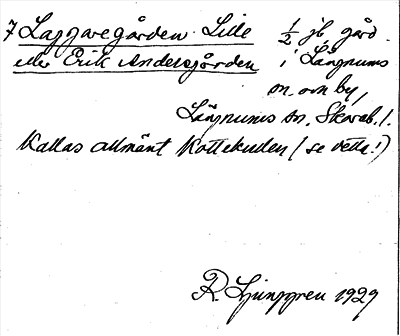 7 Laggaregården Lille 1/2 jb. gård.
eller Erik Andersgården i Långnums
m. om by,
Långnums sn. Skarab. l.
Kallas allmänt Kottekullen (se detta!)
R. Ljunggren 1929